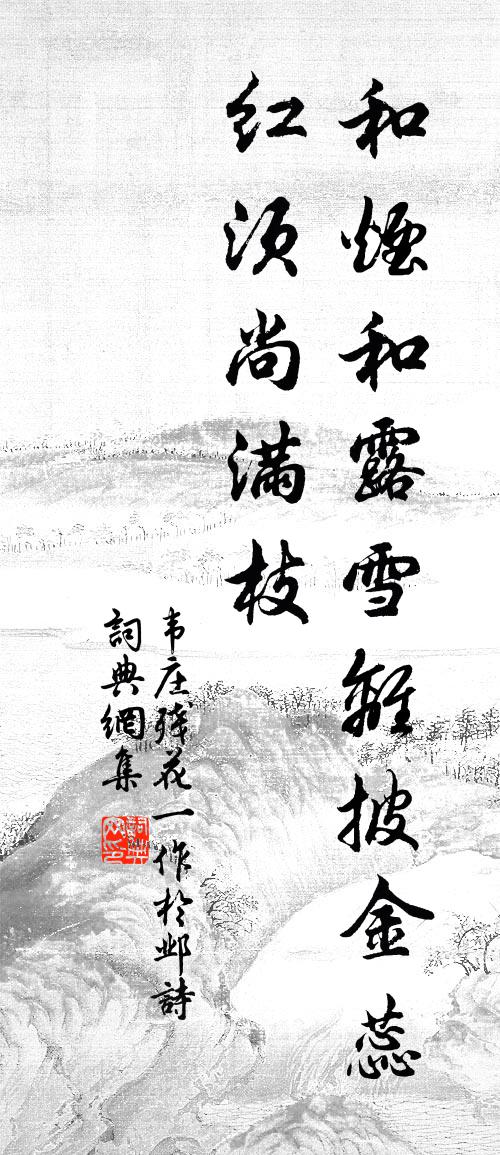 和煙和露雪離披金蕊
红须尚满枝
韦庄残花一作於邺詩
詞典網集